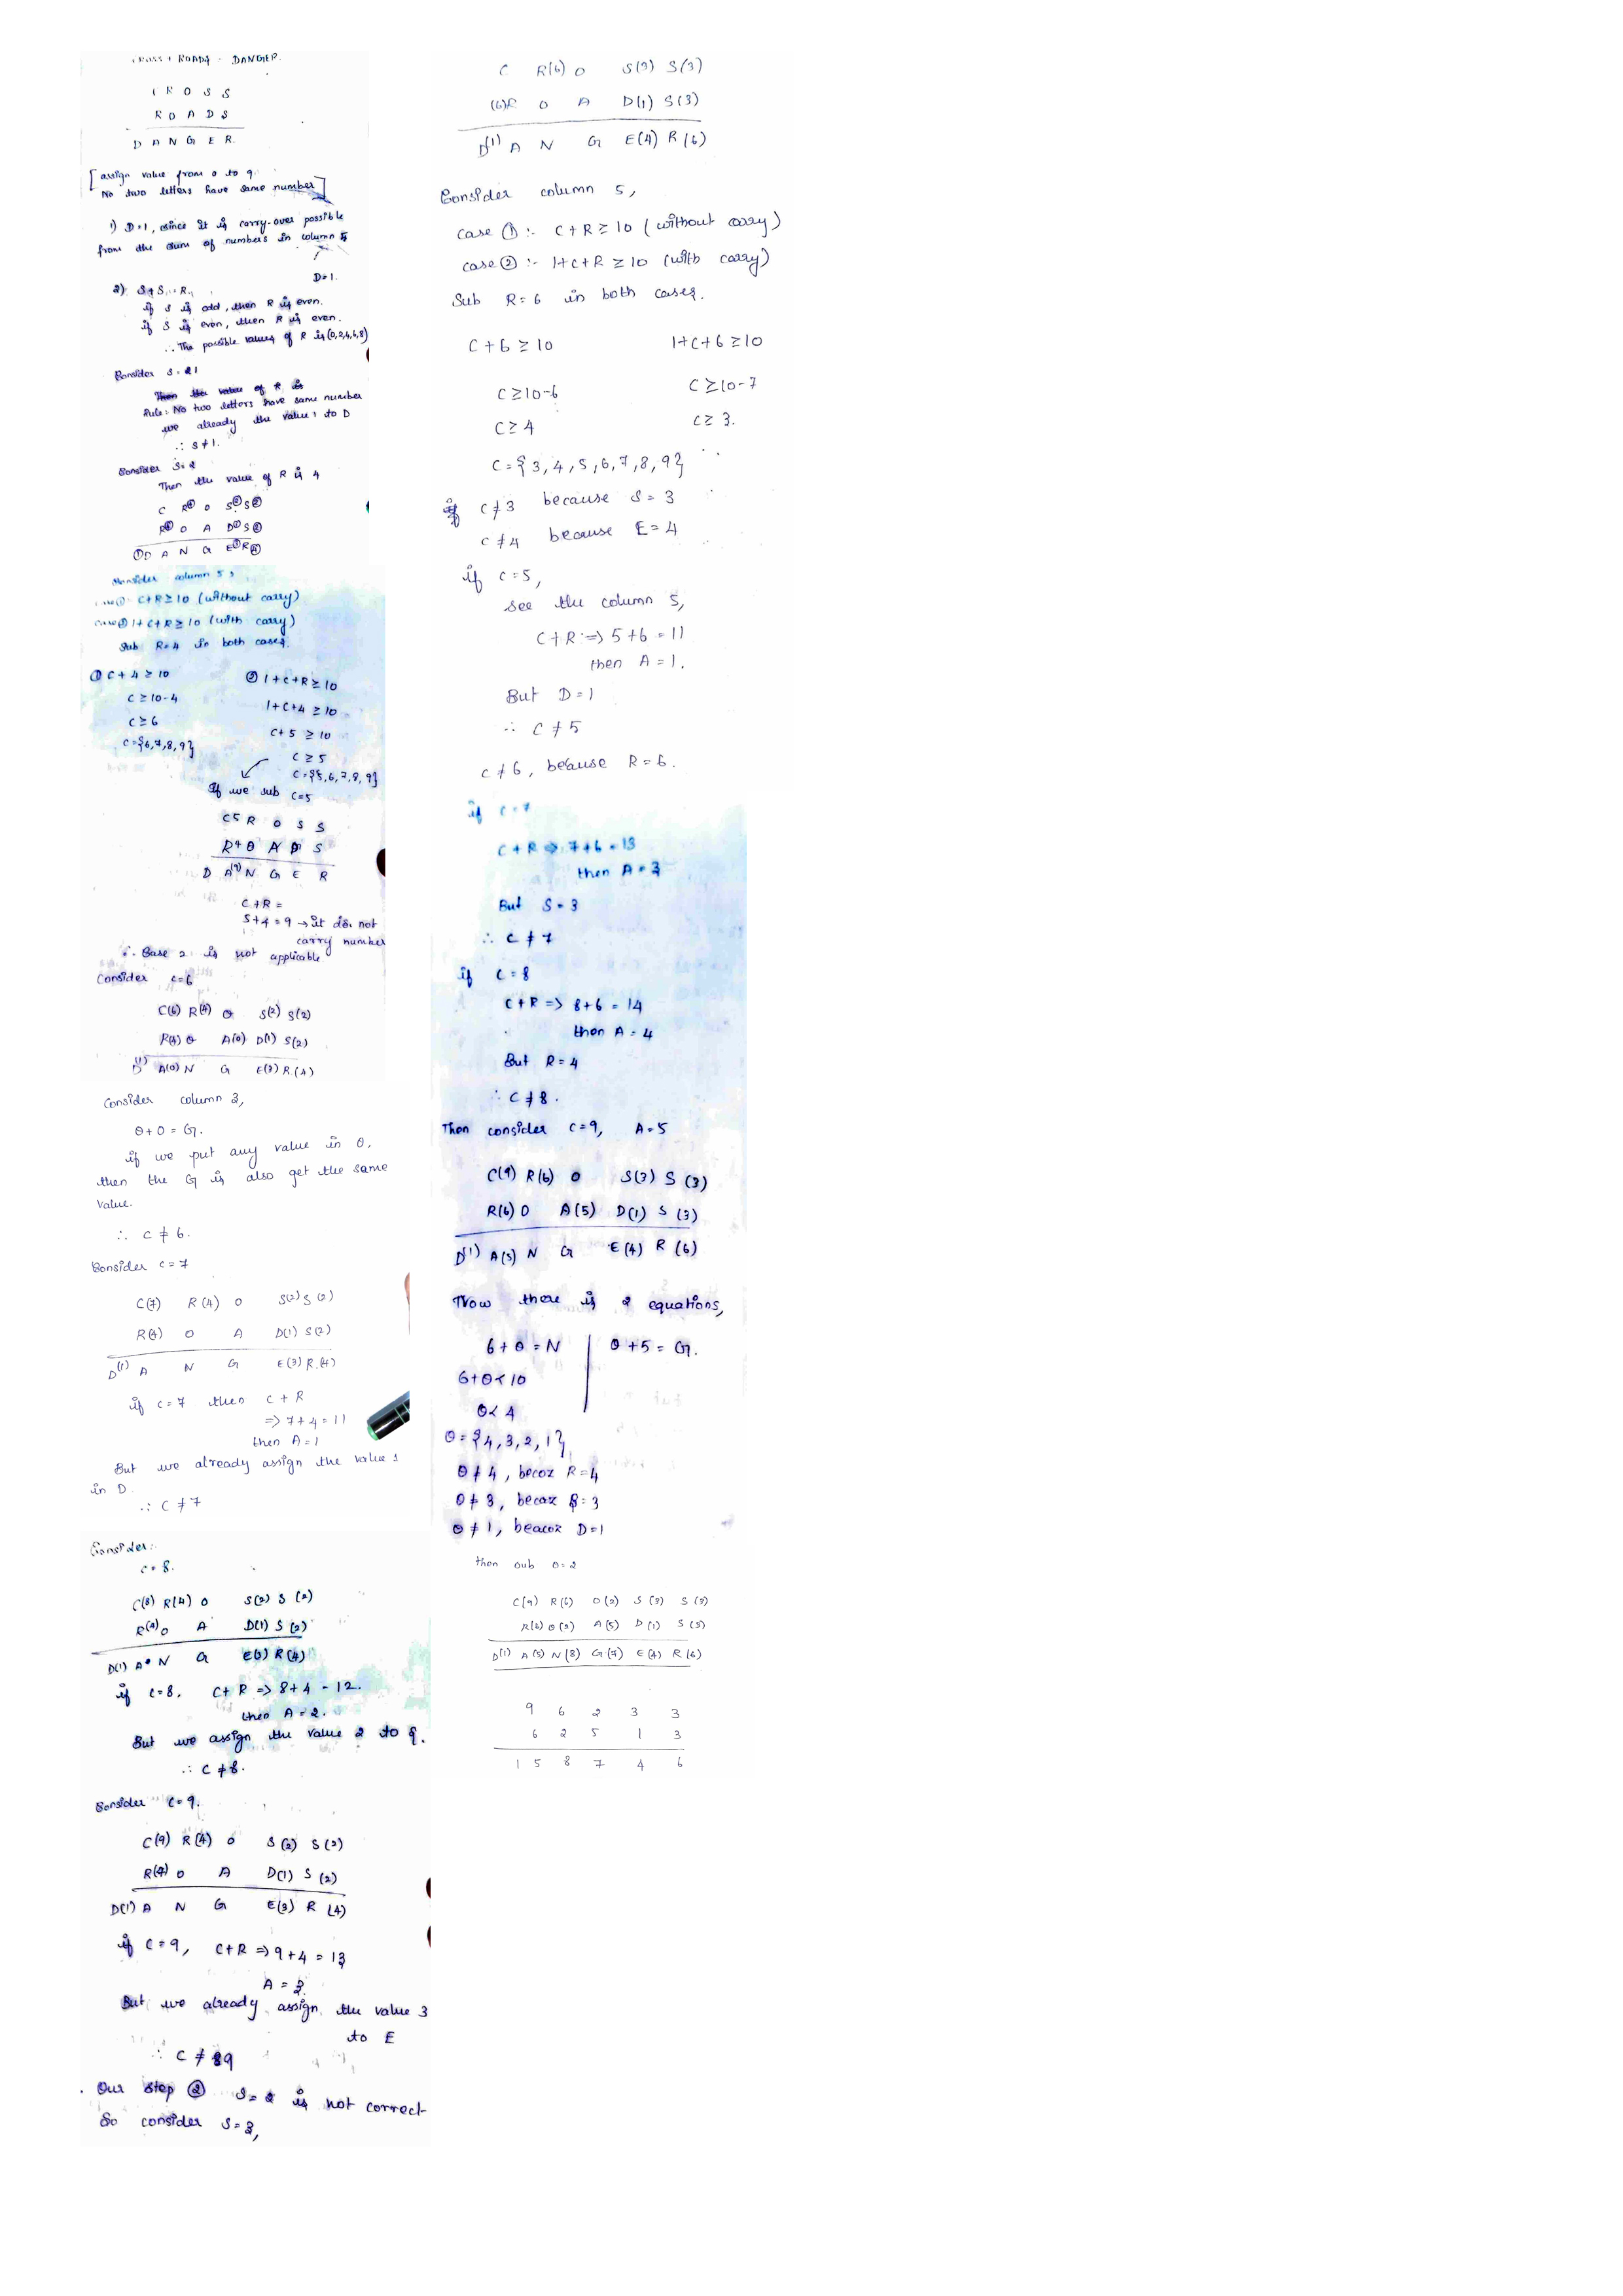 CROSS + ROADS = DANGER.
C R O S S
R O A D S
D A N G E R.
[assign value from 0 to 9.
No two letters have same number]
1) D=1, since it is carry-over possible
from the sum of numbers in column 5
D=1.
2) S+S = R,
if S is odd, then R is even.
if S is even, then R is even.
∴ The possible values of R is (0,2,4,6,8)
Consider S=1
Rule: No two letters have same number
we already the value 1 to D
∴ S≠1.
Consider S=2
Then the value of R is 4
C R④ O S② S②
R④ O A D① S②
①D A N G E③ R④
Consider column 5,
case① C+R≥10 (without carry)
case② 1+C+R≥10 (with carry)
Sub R=4 in both cases.
① C+4≥10
C≥10-4
C≥6
C={6,7,8,9}
② 1+C+R≥10
1+C+4≥10
C+5≥10
C≥5
C={5,6,7,8,9}
If we sub C=5
C5 R O S S
R4 O A D1 S
D A(9) N G E R
C+R=
5+4=9 → it do not
carry number
∴ Case 2 is not applicable
Consider C=6
C(6) R(4) O S(2) S(2)
R(4) O A(0) D(1) S(2)
D(1) A(0) N G E(3) R(4)
Consider column 3,
O+0=G.
if we put any value in O,
then the G is also get the same
value.
∴ C≠6.
Consider C=7
C(7) R(4) O S(2) S(2)
R(4) O A D(1) S(2)
D(1) A N G E(3) R(4)
if C=7 then C+R
=> 7+4=11
then A=1
But we already assign the value 1
in D
∴ C≠7
Consider:
C=8.
C(8) R(4) O S(2) S(2)
R(4) O A D(1) S(2)
D(1) A N G E(3) R(4)
if C=8, C+R => 8+4=12.
then A=2.
But we assign the value 2 to S.
∴ C≠8.
Consider C=9.
C(9) R(4) O S(2) S(2)
R(4) O A D(1) S(2)
D(1) A N G E(3) R(4)
if C=9, C+R => 9+4=13
A=3.
But we already assign the value 3
to E
∴ C≠9
Our step ② S=2 is not correct
So consider S=3,
C R(6) O S(3) S(3)
(6)R O A D(1) S(3)
D(1) A N G E(4) R(6)
Consider column 5,
case ① :- C+R≥10 (without carry)
case ② :- 1+C+R≥10 (with carry)
Sub R=6 in both cases.
C+6≥10
1+C+6≥10
C≥10-6
C≥10-7
C≥4
C≥3.
C={3,4,5,6,7,8,9}
C≠3 because S=3
C≠4 because E=4
if C=5,
see the column 5,
C+R => 5+6=11
then A=1.
But D=1
∴ C≠5
C≠6, because R=6.
if C=7
C+R => 7+6=13
then A=3
But S=3
∴ C≠7
if C=8
C+R => 8+6=14
then A=4
But R=4
∴ C≠8.
Then consider C=9, A=5
C(9) R(6) O S(3) S(3)
R(6) O A(5) D(1) S(3)
D(1) A(5) N G E(4) R(6)
Now there is 2 equations,
6+O=N | O+5=G.
6+O<10
O<4
O={4,3,2,1}
O≠4, becoz R=4
O≠3, becoz S=3
O≠1, beacoz D=1
then sub O=2
C(9) R(6) O(2) S(3) S(3)
R(6) O(2) A(5) D(1) S(3)
D(1) A(5) N(8) G(7) E(4) R(6)
9 6 2 3 3
6 2 5 1 3
1 5 8 7 4 6